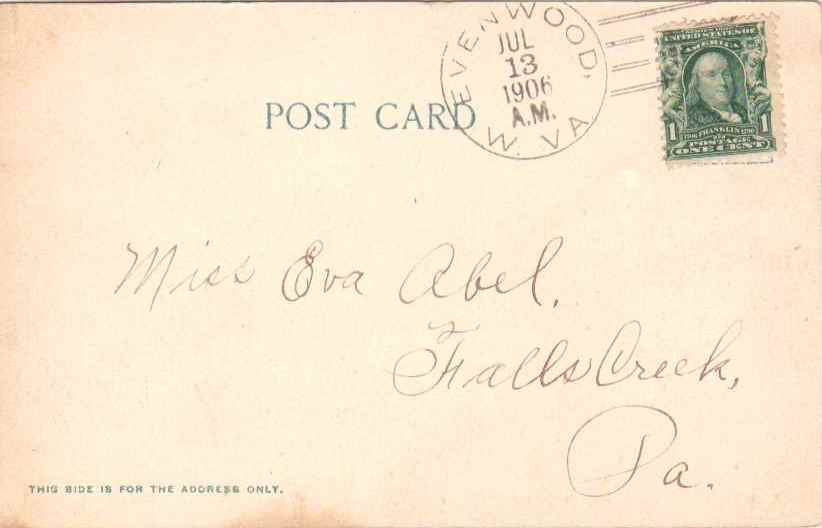 EVENWOOD,
W. VA
JUL
13
1906
A.M.
UNITED STATES OF
AMERICA
1 FRANKLIN 1
POSTAGE
ONE CENT
POST CARD
Miss Eva Abel.
Falls Creek,
Pa.
THIS SIDE IS FOR THE ADDRESS ONLY.